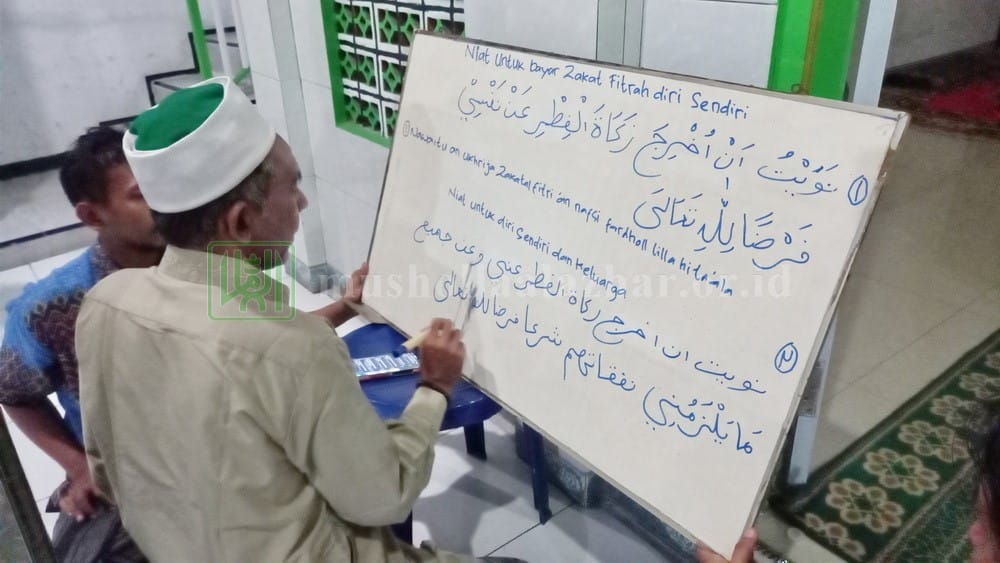 Niat untuk bayar Zakat Fitrah diri Sendiri
① نَوَيْتُ اَنْ اُخْرِجَ زَكَاةَ الْفِطْرِ عَنْ نَفْسِيْ
فَرْضًا لِلّٰهِ تَعَالَى
① Nawaitu an ukhrija Zakatal fitri 'an nafsi fardholl lilla hita'ala
Niat untuk diri Sendiri dan keluarga
② نويت ان اخرج زكاة الفطر عني وعن جميع
مَا يَلْزَمُنِي نفقاتهم شرعا فرضا لله تعالى
musholla azhar.or.id